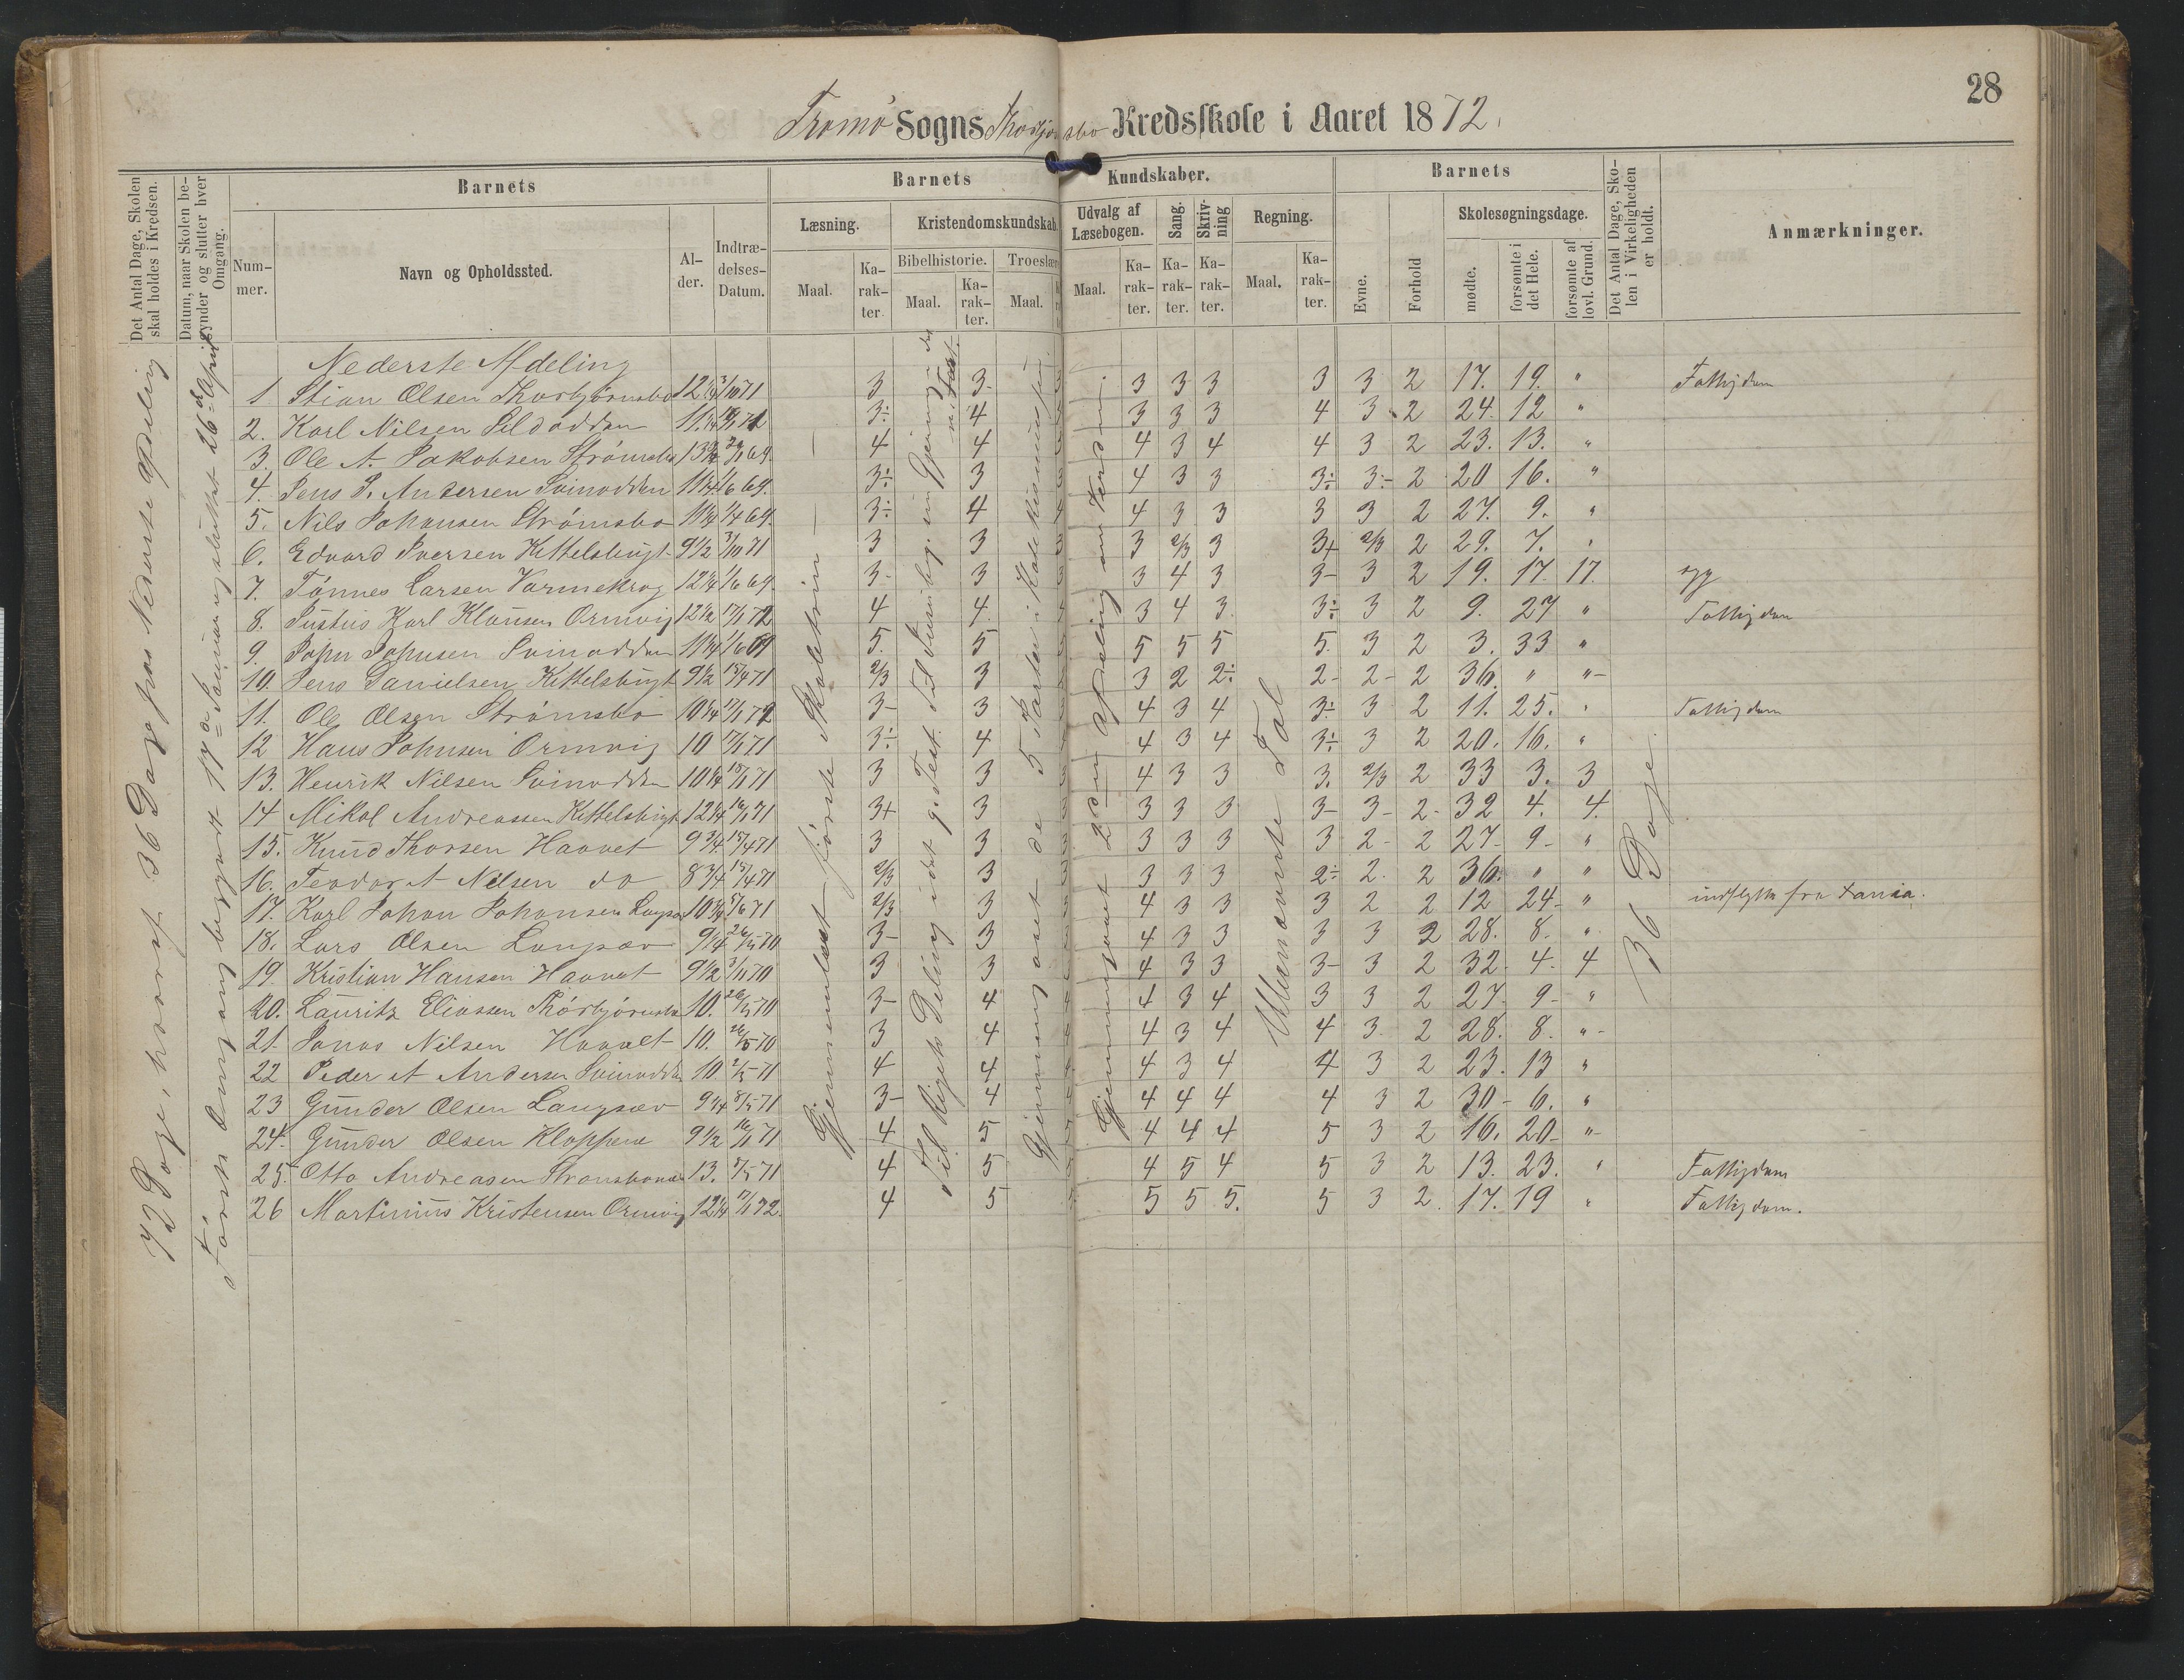 28
Tromø Sogns Thorbjørnsbo Kredsskole i Aaret 1872.
Det Antal Dage, Skolen skal holdes i Kredsen.
Datum, naar Skolen begynder og slutter hver Omgang.
Barnets
Nummer.
Navn og Opholdssted.
Alder.
Indtrædelses-Datum.
Barnets Kundskaber.
Læsning.
Maal.
Karakter.
Kristendomskundskab.
Bibelhistorie.
Maal.
Karakter.
Troeslære
Maal.
Udvalg af Læsebogen.
Maal.
Karakter.
Sang.
Karakter.
Skrivning
Karakter.
Regning.
Maal.
Karakter.
Barnets
Evne.
Forhold
Skolesøgningsdage.
mødte.
forsømte i det Hele.
forsømte af lovl. Grund.
Det Antal Dage, Skolen i Virkeligheden er holdt.
Anmærkninger.
72 Dage, hvoraf 36 Dage paa Nederste Afdeling
Første Omgang begyndt 17de Januar og sluttet 26de April
Gjennemlæst første Skoletrin
Gjennemgaaet de 5 Parter i Katekismussen.
Gjennemgaaet 2den Afdeling
Ubenævnte Tal
36 Dage
Nederste Afdeling
1 Stian Olsen Thorbjørnsbo 12 1/4 3/10 71 3 3 3 3 3 3 3 2 17. 19. " Fattigdom
2. Karl Nilsen Sildodden 3÷ 4 3 3 3 4 3 2 24. 12 "
3. Ole A. Jakobsen Strømsbo 4 4 4 3 4 4 3 2 23. 13. "
4. Jens P. Andersen Svinodden 11 1/4 1/6 69. 3÷ 3 4 3 3 3÷ 3- 2 20 16. "
5. Nils Johansen Strømsbo 11 1/4 1/4 69. 3÷ 4 4 3 3 3 3 2 27. 9. "
6. Edvard Iversen Kittelsbugt 9 1/2 3/10 71 3 3 3 2/3 3 3+ 2/3 2 29. 7. "
7. Tønnes Larsen Varmekrog 12 1/4 1/6 69. 3- 3 3 4 3 3- 3 2 19. 17. 17. syg
8. Justius Karl Klausen Ormvig 12 1/2 17/1 72 4 4. 3 4 3. 3÷ 3 2 9. 27 " Fattigdom
9. John Johnsen Svinodden 11 1/4 1/6 69 5. 5 5 5 5 5. 3 2 3. 33 "
10. Jens Danielsen Kittelsbugt 9 1/2 15/4 71 2/3 3 3 2 2÷ 2- 2- 2 36. " "
11. Ole Olsen Strømsbo 10 1/4 17/1 72 3- 3 4 3 4 3÷ 3 2 11. 25. " Fattigdom
12 Hans Johnsen Ormvig 10 17/1 71 3÷ 4 4 3 4 3÷ 3 2 20. 16. "
13. Henrik Nilsen Svinodden 10 1/4 18/1 71 3 3 4 3 3 3. 2/3 2 33 3. 3
14 Mikal Andreassen Kittelsbugt 12 1/4 16/1 71 3+ 3 3 3 3 3- 3- 2- 32 4. 4.
15. Knud Thorsen Haavet 9 3/4 15/4 71 3 3 3 3 3 3 2- 2 27- 9- "
16. Teodor A Nilsen do 8 3/4 15/4 71 2/3 3 3 3 3 2÷ 2. 2 36. " "
17. Karl Johan Johansen Langsæv 10 3/4 5/6 71 2/3 3 4 3 3 3 2 2 12 24- " indflytte fra
18. Lars Olsen Langsæv 9 1/4 26/5 70 3- 3 4 3 3 3 3 2 28. 8. "
19. Kristian Hansen Haavet 9 1/2 3/11 70 3 3 4 3 3 3- 3 2 32. 4. 4
20. Lauritz Eliassen Thorbjørnsbo 10. 26/5 70 3- 4 4 3 4 3 3 2 27. 9- "
21. Jonas Nilsen Haavet 10. 26/5 70 3 4 4 3 4 4 3 2 28. 8. "
22 Peder A Andersen Svinodden 10. 2/5 71 4 4 4 3 4 4 3 2 23. 13 "
23 Gunder Olsen Langsæv 9 1/4 8/5 71 3- 4 4 4 4 4 3 2 30- 6. "
24. Gunder Olsen Kloppene 9 1/2 16/1 71 4 5 4 4 4 5 3 2 16. 20- "
25. Otto Andreasen 13. 8/5 71 4 5 4 5 4 5 3 2 13. 23. " Fattigdom
26 Martinius Kristensen Ormvig 12 1/4 17/1 72. 4 5 5 5 5. 5 3 2. 17. 19 " Fattigdom.